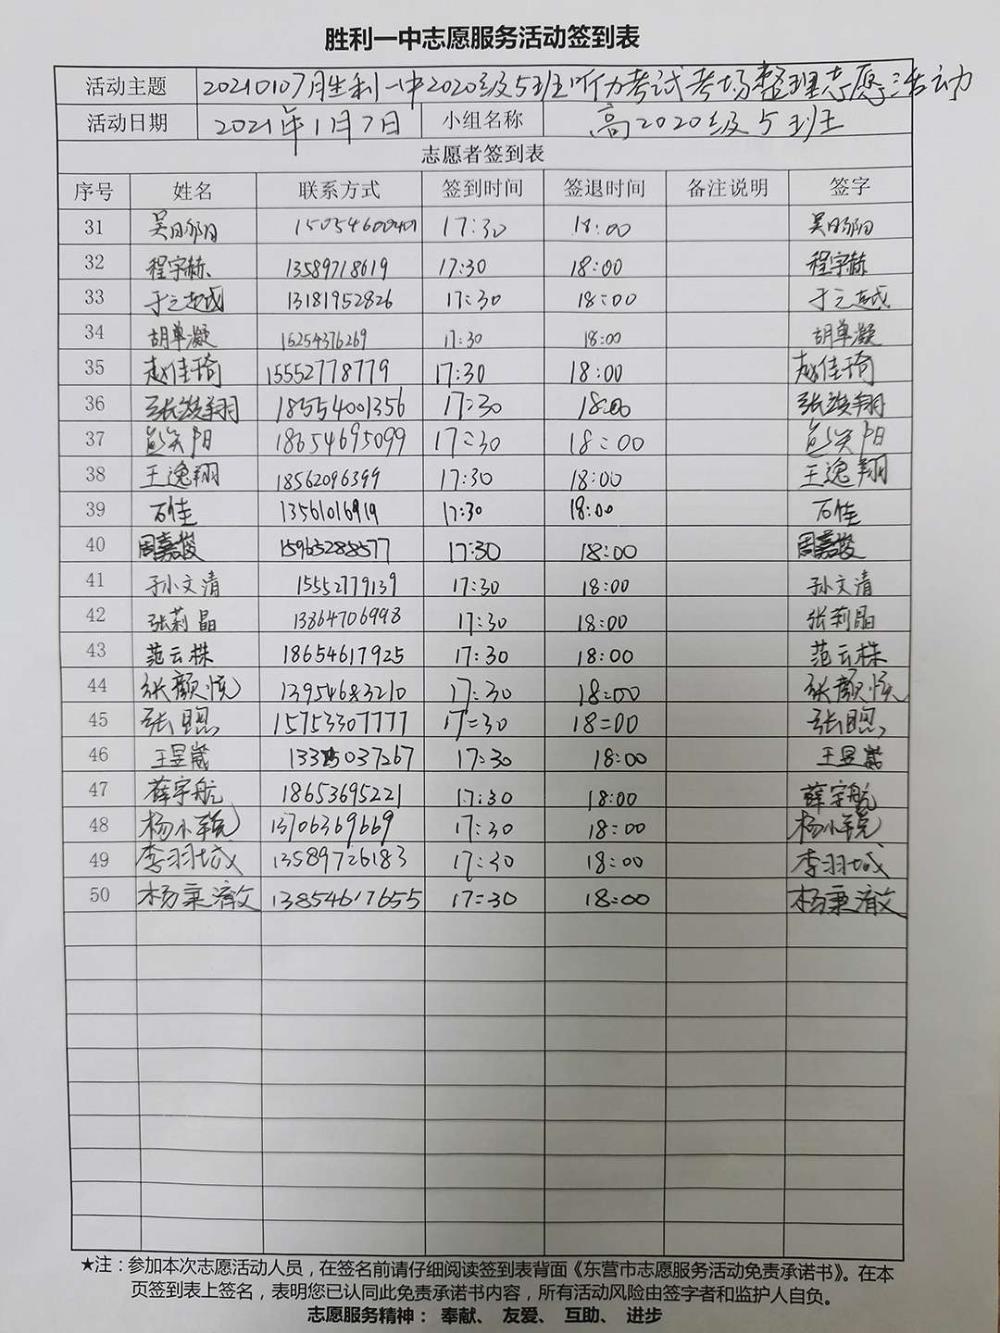 胜利一中志愿服务活动签到表
活动主题 20210107月生利一中2020级5班听力考试考场整理志愿活动
活动日期 2021年1月7日 小组名称 高2020级5班
志愿者签到表
序号 姓名 联系方式 签到时间 签退时间 备注说明 签字
31 15054600401 17:30 18:00
32 程宇赫 13589718619 17:30 18:00 程宇赫
33 于之越 13181952826 17:30 18:00 于之越
34 胡单凝 15254376269 17:30 18:00 胡单凝
35 赵佳琦 15552778779 17:30 18:00 赵佳琦
36 张竣翔 18554001356 17:30 18:00 张竣翔
37 18654695099 17:30 18:00
38 王逸翔 18562096399 17:30 18:00 王逸翔
39 石佳 13561016919 17:30 18:00 石佳
40 周嘉俊 15965288577 17:30 18:00 周嘉俊
41 孙文清 15552779139 17:30 18:00 孙文清
42 张莉晶 13864706998 17:30 18:00 张莉晶
43 范云株 18654617925 17:30 18:00 范云株
44 张颜悦 13954683210 17:30 18:00 张颜悦
45 张照 15753307777 17:30 18:00 张照
46 王昱崴 13315037267 17:30 18:00 王昱崴
47 薛宇航 18653695221 17:30 18:00 薛宇航
48 杨小锐 13706369669 17:30 18:00 杨小锐
49 李羽城 13589726183 17:30 18:00 李羽城
50 杨秉澈 13854617655 17:30 18:00 杨秉澈
★注：参加本次志愿活动人员，在签名前请仔细阅读签到表背面《东营市志愿服务活动免责承诺书》。在本
页签到表上签名，表明您已认同此免责承诺书内容，所有活动风险由签字者和监护人自负。
志愿服务精神： 奉献、 友爱、 互助、 进步